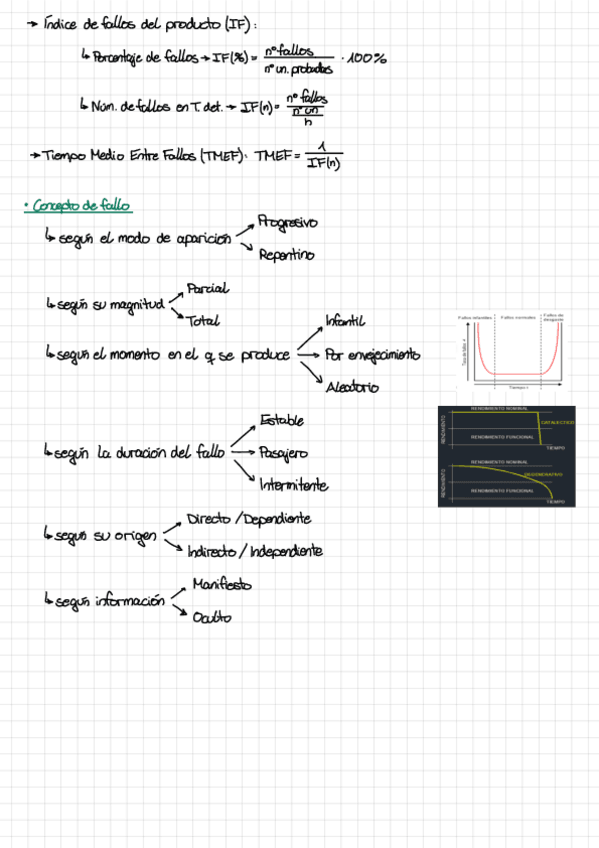 → Índice de fallos del producto (IF):
↳ Porcentaje de fallos → IF(%) = nº fallos / nº un. probadas · 100%
↳ Núm. de fallos en T. det. → IF(n) = nº fallos / nº un / h
→ Tiempo Medio Entre Fallos (TMEF): TMEF = 1 / IF(n)
• Concepto de fallo
↳ según el modo de aparición → Progresivo
→ Repentino
↳ según su magnitud → Parcial
→ Total
↳ según el momento en el q se produce → Infantil
→ Por envejecimiento
→ Aleatorio
Fallos infantiles
Fallos normales
Fallos de desgaste
Tasa de fallos
Tiempo t
↳ según la duración del fallo → Estable
→ Pasajero
→ Intermitente
RENDIMIENTO NOMINAL
RENDIMIENTO
CATALECTICO
RENDIMIENTO FUNCIONAL
TIEMPO
RENDIMIENTO NOMINAL
RENDIMIENTO
DEGENERATIVO
RENDIMIENTO FUNCIONAL
TIEMPO
↳ según su origen → Directo / Dependiente
→ Indirecto / Independiente
↳ según información → Manifiesto
→ Oculto